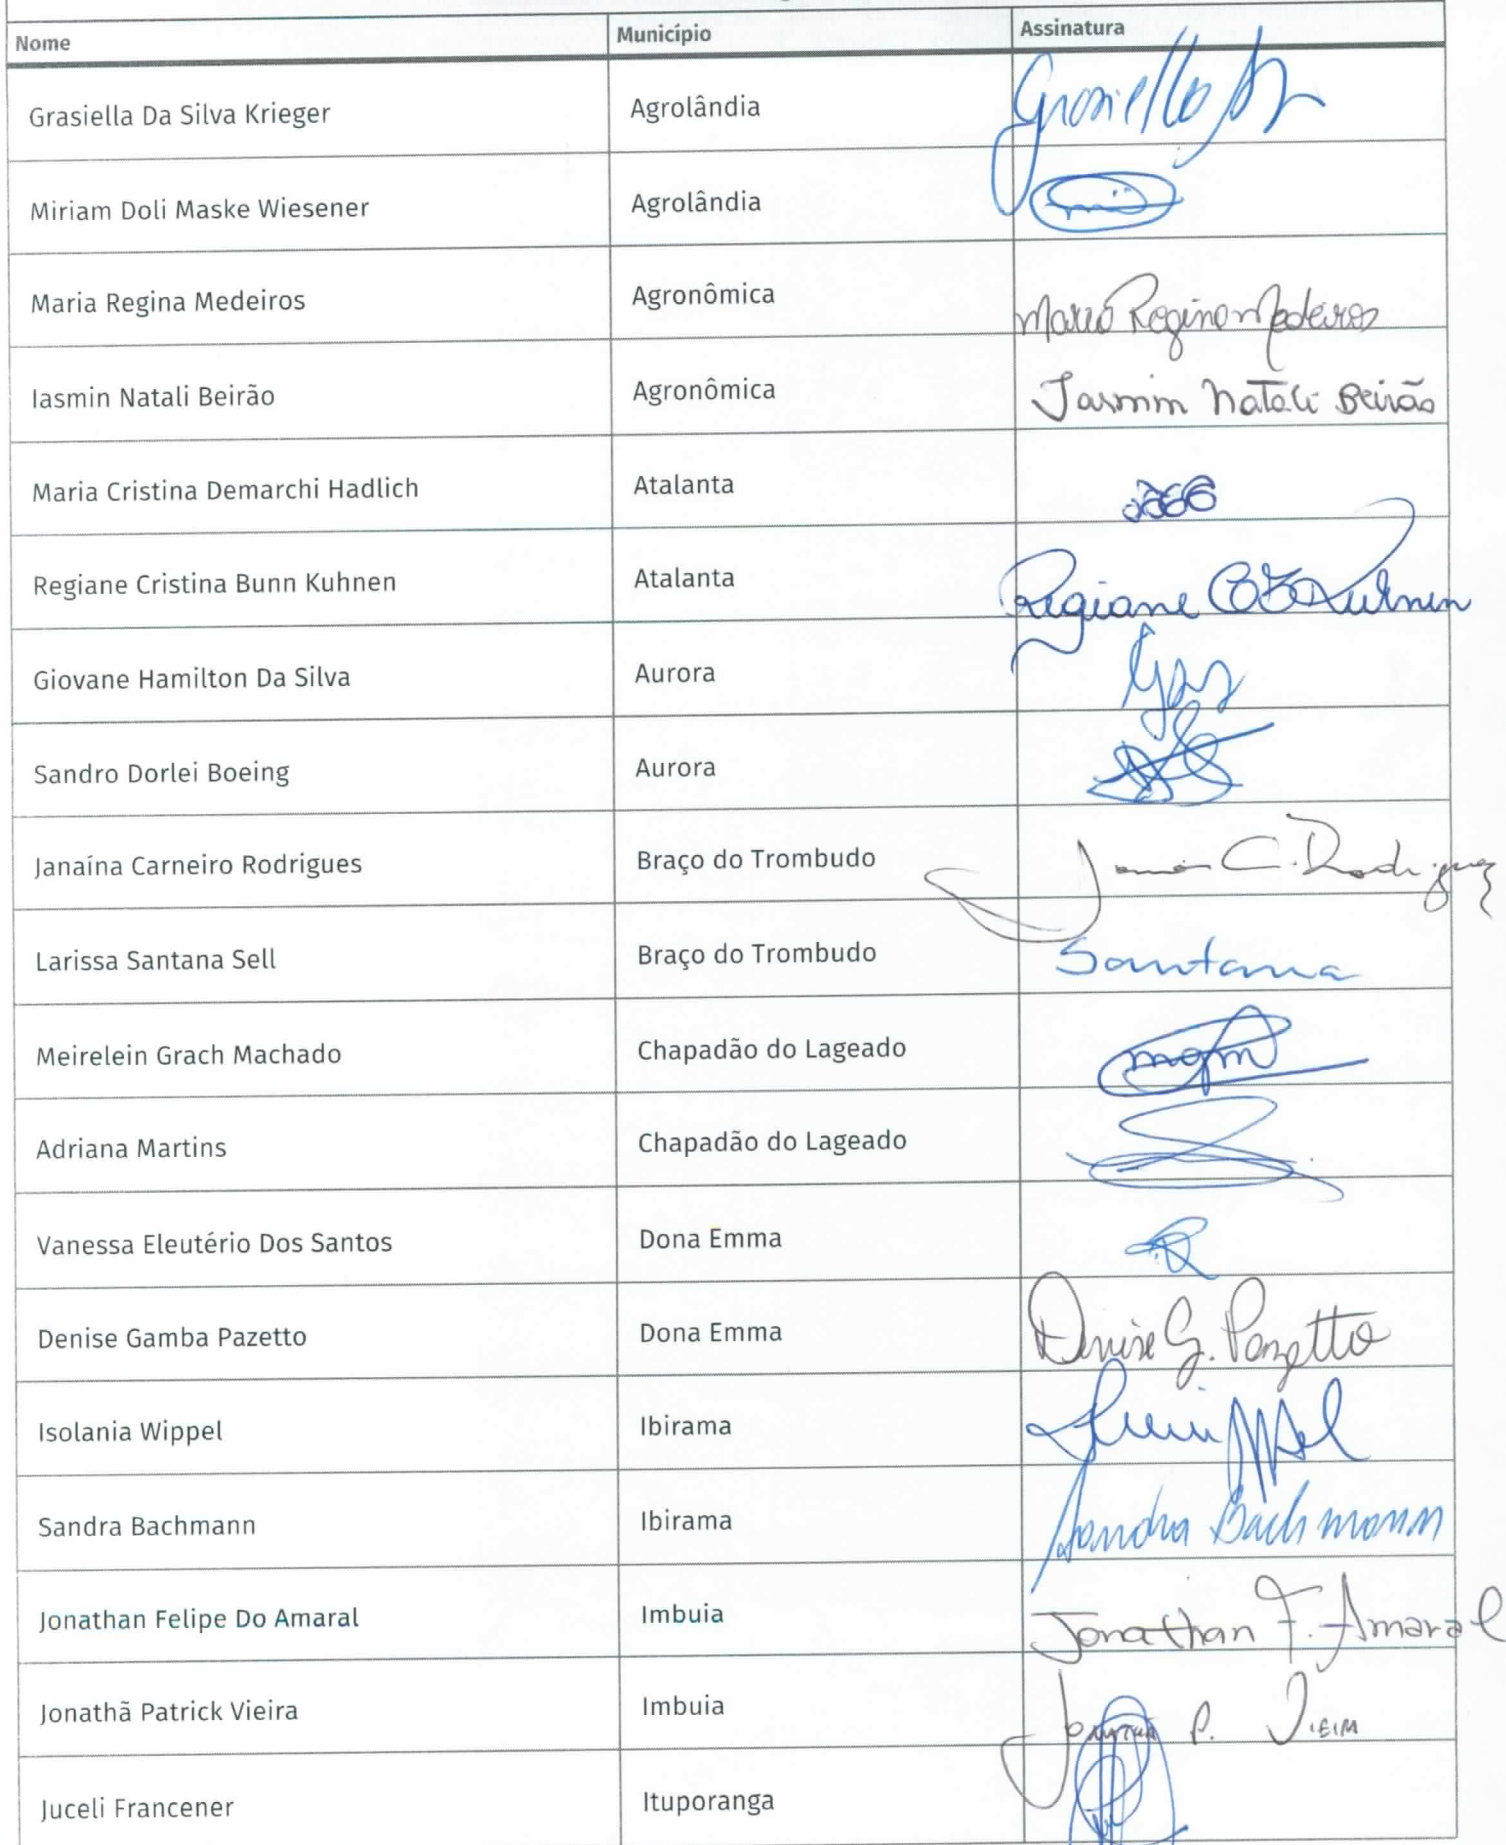 Nome Município Assinatura
Grasiella Da Silva Krieger Agrolândia Grasiella
Miriam Doli Maske Wiesener Agrolândia
Maria Regina Medeiros Agronômica Maria Regina Medeiros
Iasmin Natali Beirão Agronômica Iasmin Natali Beirão
Maria Cristina Demarchi Hadlich Atalanta
Regiane Cristina Bunn Kuhnen Atalanta Regiane CB Kuhnen
Giovane Hamilton Da Silva Aurora
Sandro Dorlei Boeing Aurora
Janaína Carneiro Rodrigues Braço do Trombudo C. Rodrigues
Larissa Santana Sell Braço do Trombudo Santana
Meirelein Grach Machado Chapadão do Lageado mgm
Adriana Martins Chapadão do Lageado
Vanessa Eleutério Dos Santos Dona Emma
Denise Gamba Pazetto Dona Emma Denise G. Pazetto
Isolania Wippel Ibirama
Sandra Bachmann Ibirama Sandra Bachmann
Jonathan Felipe Do Amaral Imbuia Jonathan F. Amaral
Jonathã Patrick Vieira Imbuia P. Vieira
Juceli Francener Ituporanga